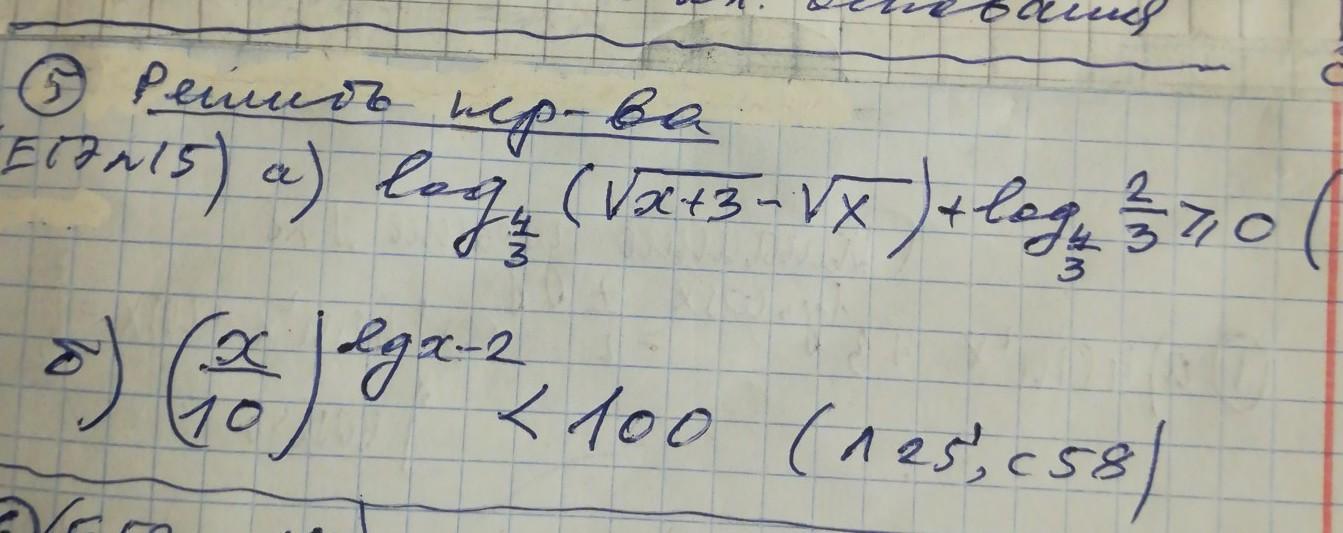 основания
⑤ Решить нер-ва
а) log_{4/3} (√(x+3) - √x) + log_{4/3} 2/3 ⩾ 0 (
б) (x/10)^{lgx-2} < 100 (л 25, с 58)